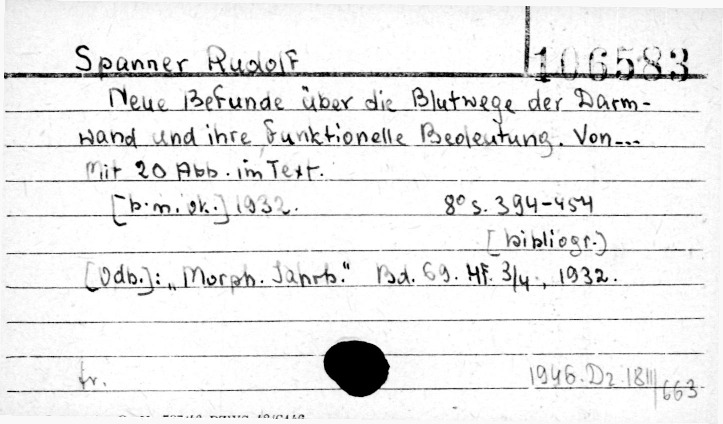 Spanner Rudolf 106583
Neue Befunde über die Blutwege der Darm-
wand und ihre funktionelle Bedeutung. Von---
Mit 20 Abb. im Text.
[b.m.ok.] 1932. 8° s. 394-454
[bibliogr.)
[Odb.]: „Morph. Jahrb." Bd. 69. Hf. 3/4., 1932.
fr. 1946. Dz 18III/663